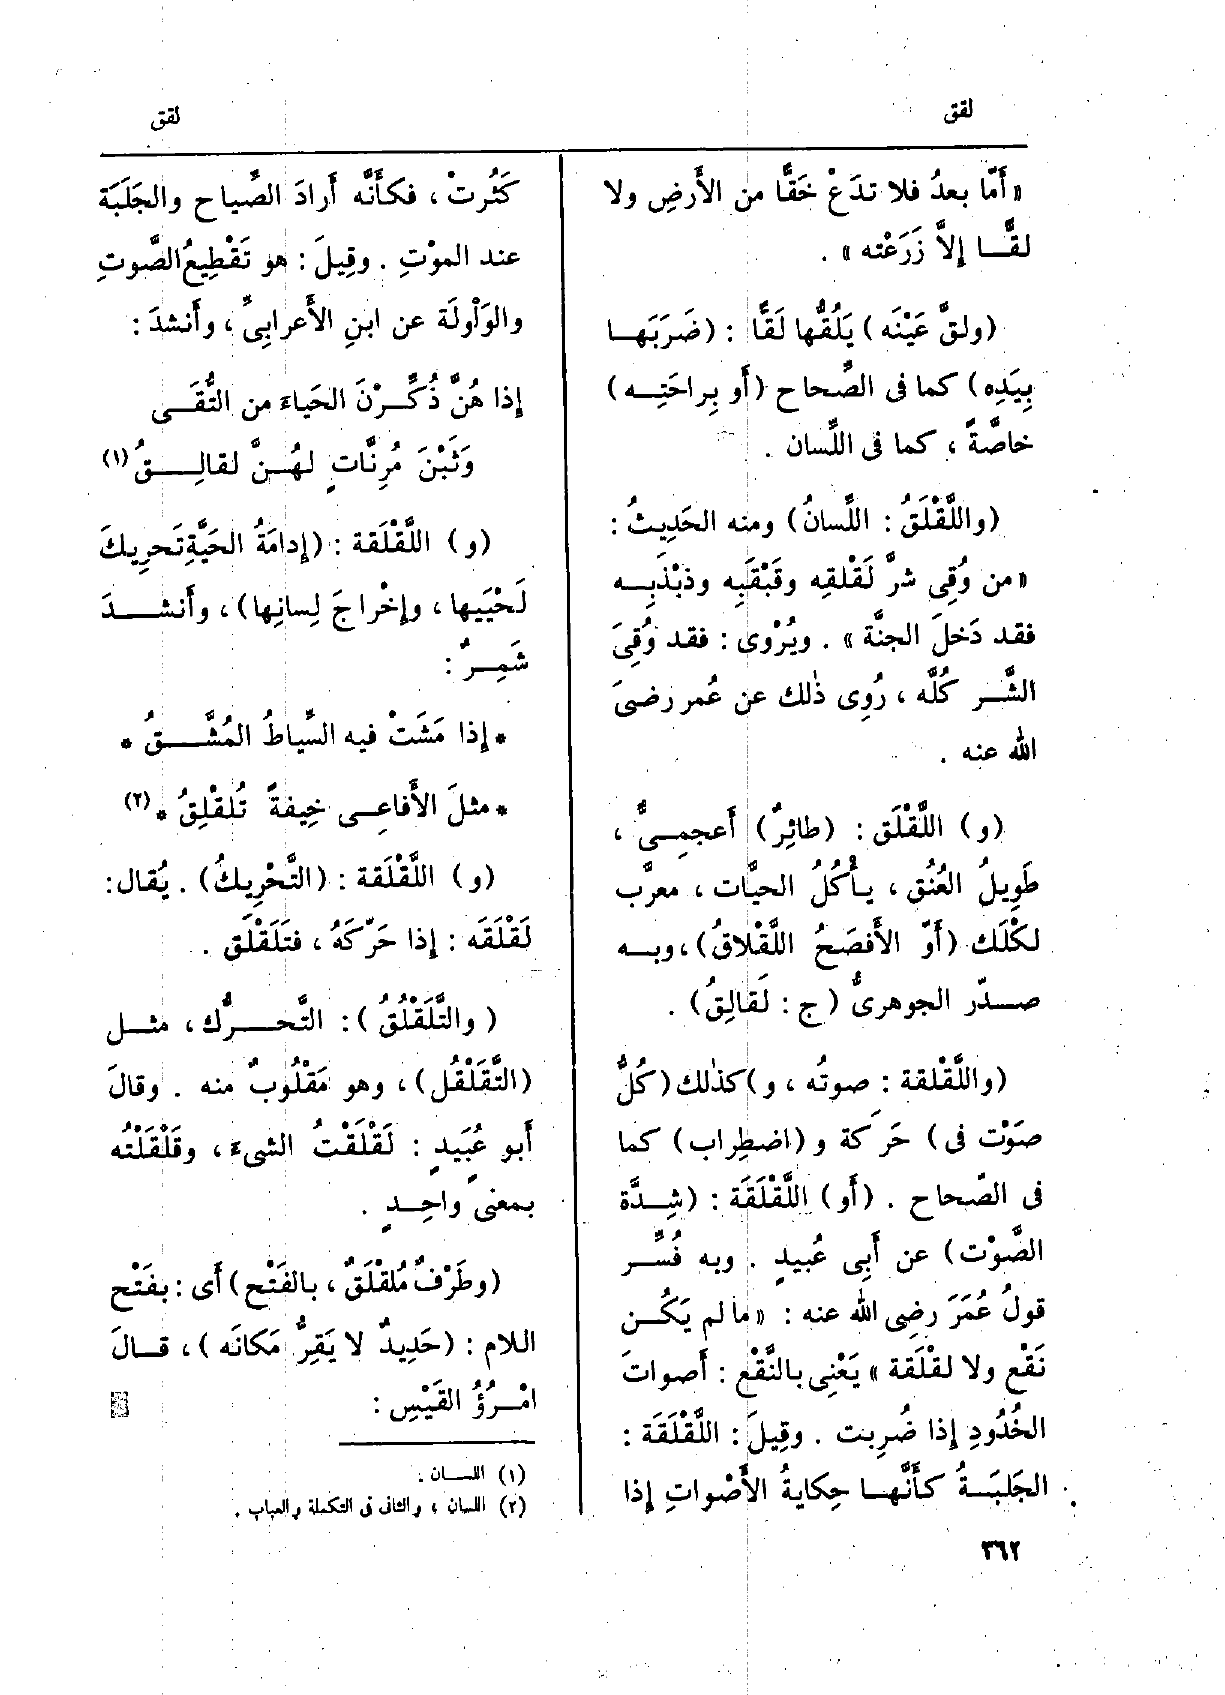 لقق
لقق
«أَمّا بعدُ فلا تدَعْ خَقًّا من الأَرضِ ولا
لقًّـــا إِلاَّ زَرَعْته» .
(ولقَّ عَيْنَه) يَلُقُّها لَقًّا : (ضَرَبَهــا
بِيَدِه) كما فى الصِّحاح (أَو بِراحَتِــه)
خاصَّةً ، كما فى اللِّسان .
(واللَّقْلَقُ : اللَّسانُ) ومنه الحَدِيثُ :
«من وُقِى شرَّ لَقْلقِه وقَبْقَبِه وذبْذَبِــه
فقد دَخلَ الجنَّة» . ويُرْوى : فقد وُقِىَ
الشَّــر كُلَّه ، رُوِى ذٰلك عن عُمر رضىَ
الله عنه .
(و) اللَّقْلَق : (طائِرٌ) أَعجمِــىٌّ ،
طَوِيلُ العُنُق ، يـأْكُلُ الحيَّات ، معرَّب
لكْلَك (أَوّ الأَفصَحُ اللَّقْلاقُ)، وبــه
صــدّر الجوهرىُّ (ج : لَقالِقُ) .
(واللَّقْلقة : صوتُه ، و) كذٰلك (كُلُّ
صَوْت فى) حَرَكة و (اضطِراب) كما
فى الصّحاح . (أَو) اللَّقْلَقَة : (شِــدَّة
الصَّوْت) عن أَبِى عُبيدٍ . وبه فُسِّــر
قولُ عُمَرَ رضِى الله عنه : «ما لم يَكُــن
نَقْع ولا لقْلَقة» يَعْنِى بالنَّقْع : أَصواتَ
الخُدُودِ إِذا ضُرِبت . وقِيلَ : اللَّقْلَقَة :
الجَلبَــةُ كأَنَّهــا حِكايةُ الأَصْواتِ إِذا
كَثُرتْ ، فكأَنَّه أَرادَ الصِّياح والجَلَبَة
عند الموْتِ . وقِيلَ : هو تَقْطِيعُ الصَّوتِ
والوَلْولَة عن ابنِ الأَعرابِىِّ ، وأَنشدَ :
إِذا هُنَّ ذُكِّــرْنَ الحَياءَ من التُّقَــى
وَثَبْنَ مُرِنَّاتٍ لهُــنَّ لقالِــــقُ (١)
(و) اللَّقْلَقة : (إِدامَةُ الحَيَّةِ تَحرِيكَ
لَحْيَيها ، وإِخْراجَ لِسانِها)، وأَنشــدَ
شَمِــرٌ :
* إِذا مَشَتْ فيه السِّياطُ المُشَّـــقُ *
* مثلَ الأَفاعِــى خِيفةً تُلقْلِقُ * (٢)
(و) اللَّقْلَقة : (التَّحْرِيكُ) . يُقال :
لَقْلَقَه : إِذا حَرّكَهُ ، فتَلَقْلَق .
(والتَّلَقْلُقُ) : التَّحــــرُّك ، مثــل
(التَّقَلْقُل)، وهو مَقْلُوبٌ منه . وقالَ
أَبو عُبَيَدٍ : لَقْلَقْتُ الشىءَ ، وقَلْقَلْتُه
بمعنًى واحِــدٍ .
(وطَرْفٌ مُلقْلَقٌ ، بالفَتْح) أَى : بفَتْح
اللام : (حَدِيدٌ لا يَقِرُّ مَكانَه)، قــالَ
امْــرُؤُ القَيْسِ :
(١) اللســان .
(٢) اللسان ، والثانى فى التكملة والعباب .
٣٦٢